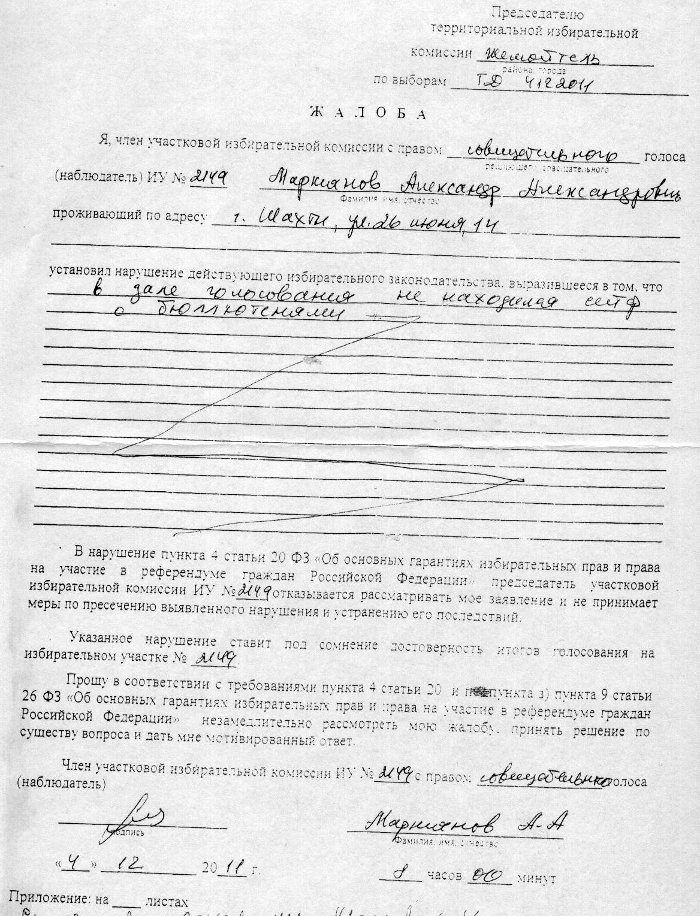 Председателю
территориальной избирательной
комиссии
района, города
по выборам ГД 4.12.2011
Ж А Л О Б А
Я, член участковой избирательной комиссии с правом совещательного голоса
решающего, совещательного
(наблюдатель) ИУ № 2149 Маркианов Александр Александрович
Фамилия, имя, отчество
проживающий по адресу г. Шахты, ул. 26 июня, 14
установил нарушение действующего избирательного законодательства, выразившееся в том, что
в зале голосования не находился сейф
с бюллютенями
В нарушение пункта 4 статьи 20 ФЗ «Об основных гарантиях избирательных прав и права
на участие в референдуме граждан Российской Федерации» председатель участковой
избирательной комиссии ИУ № 2149 отказывается рассматривать мое заявление и не принимает
меры по пресечению выявленного нарушения и устранению его последствий.
Указанное нарушение ставит под сомнение достоверность итогов голосования на
избирательном участке № 2149
Прошу в соответствии с требованиями пункта 4 статьи 20 и подпункта з) пункта 9 статьи
26 ФЗ «Об основных гарантиях избирательных прав и права на участие в референдуме граждан
Российской Федерации» незамедлительно рассмотреть мою жалобу, принять решение по
существу вопроса и дать мне мотивированный ответ.
Член участковой избирательной комиссии ИУ № 2149 с правом совещательного голоса
(наблюдатель)
Маркианов А-А
подпись Фамилия, имя, отчество
«4» 12 2011 г. 8 часов 00 минут
Приложение: на ___ листах